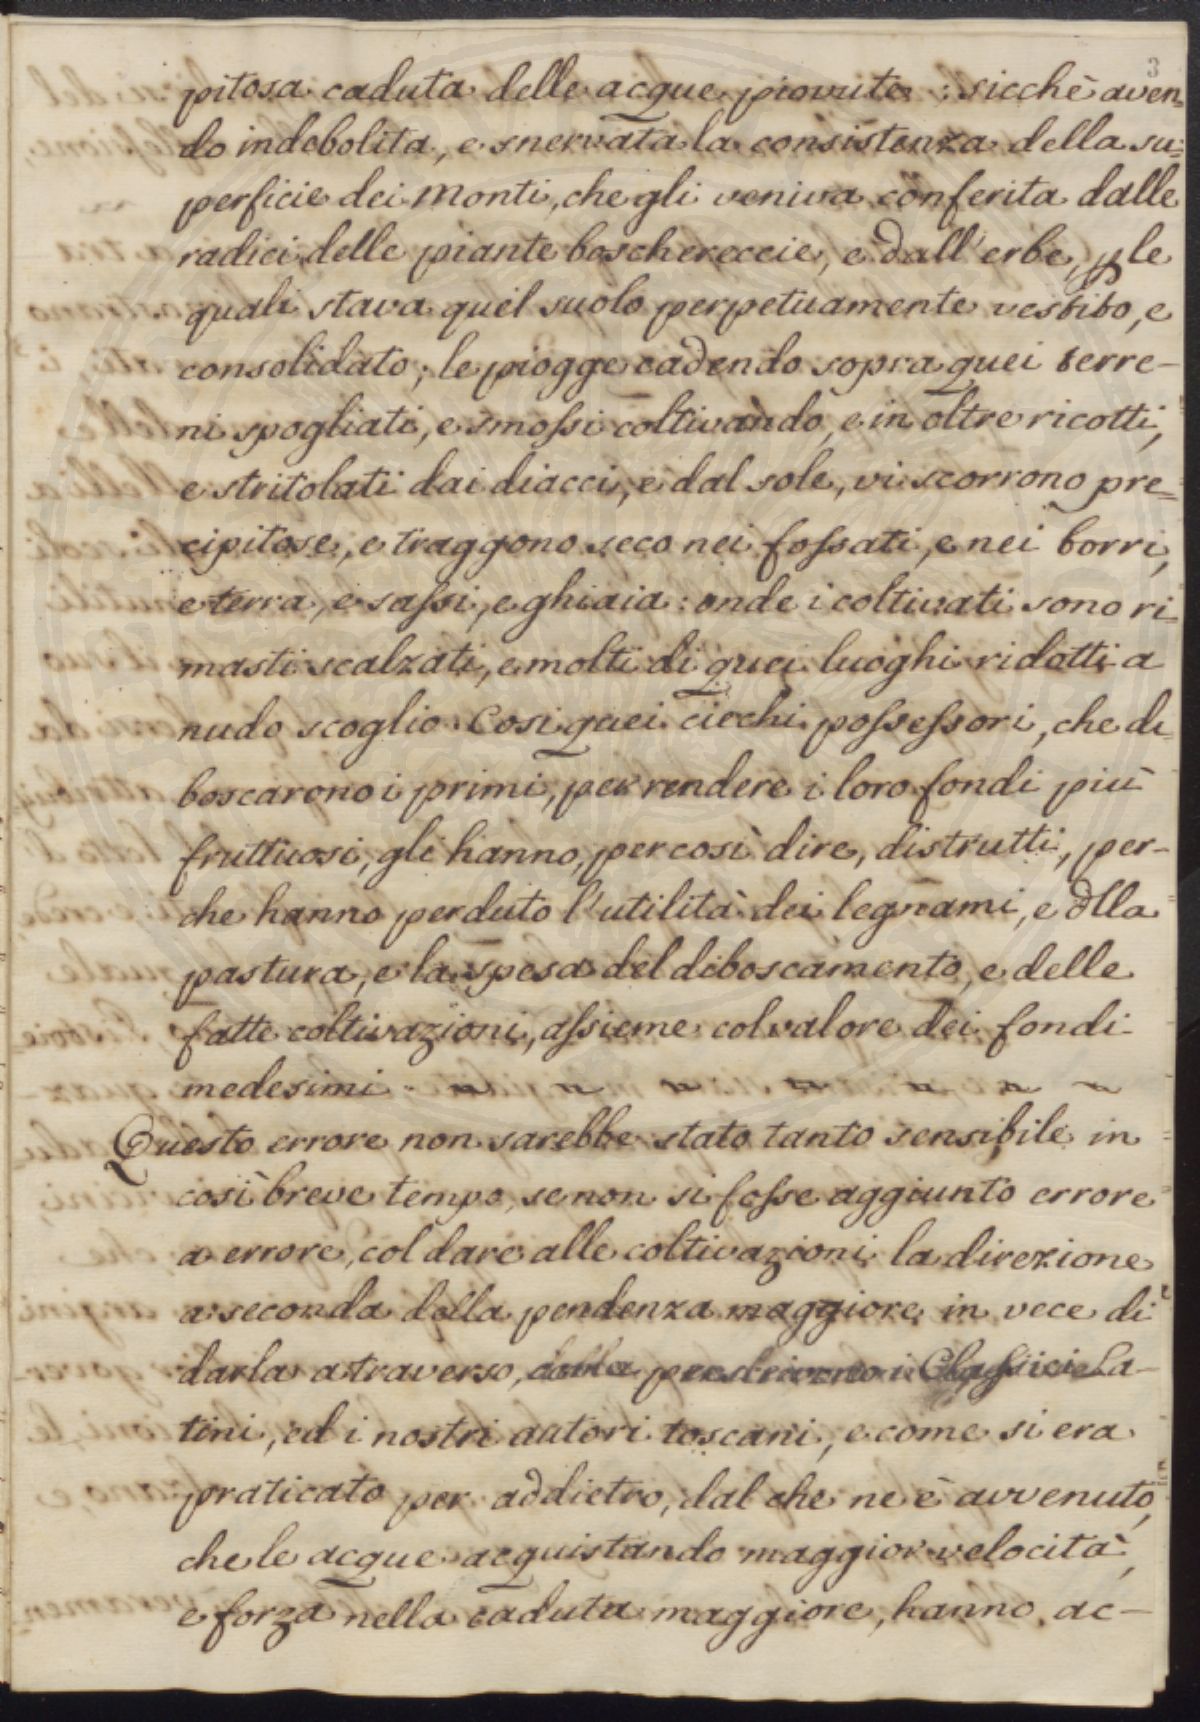 3
pitosa caduta delle acque piovute: sicchè aven=
do indebolita, e snervata la consistenza della su=
perficie dei Monti, che gli veniva conferita dalle
radici delle piante boschereccie, e dall'erbe, p le
quali stava quel suolo perpetuamente vestito, e
consolidato; le piogge cadendo sopra quei terre-
ni spogliati, e smossi coltivando, e in oltre ricotti,
e stritolati dai diacci, e dal sole, vi scorrono pre=
cipitose, e traggono seco nei fossati, e nei borri,
e terra, e sassi, e ghiaia: onde i coltivati sono ri=
masti scalzati, e molti di quei luoghi ridotti a
nudo scoglio. Così quei ciechi possessori, che di=
boscarono i primi, per rendere i loro fondi più
fruttuosi, gli hanno, per così dire, distrutti, per-
che hanno perduto l'utilità dei legnami, e dlla
pastura, e la spesa del diboscamento, e delle
fatte coltivazioni, assieme col valore dei fondi
medesimi
Questo errore non sarebbe stato tanto sensibile in
così breve tempo, se non si fosse aggiunto errore
a errore, col dare alle coltivazioni la direzione
a seconda della pendenza maggiore, in vece di
darla a traverso, i Classici La-
tini, ed i nostri autori toscani, e come si era
praticato per addietro, dal che ne è avvenuto,
che le acque acquistando maggior velocità,
e forza nella caduta maggiore, hanno ac-